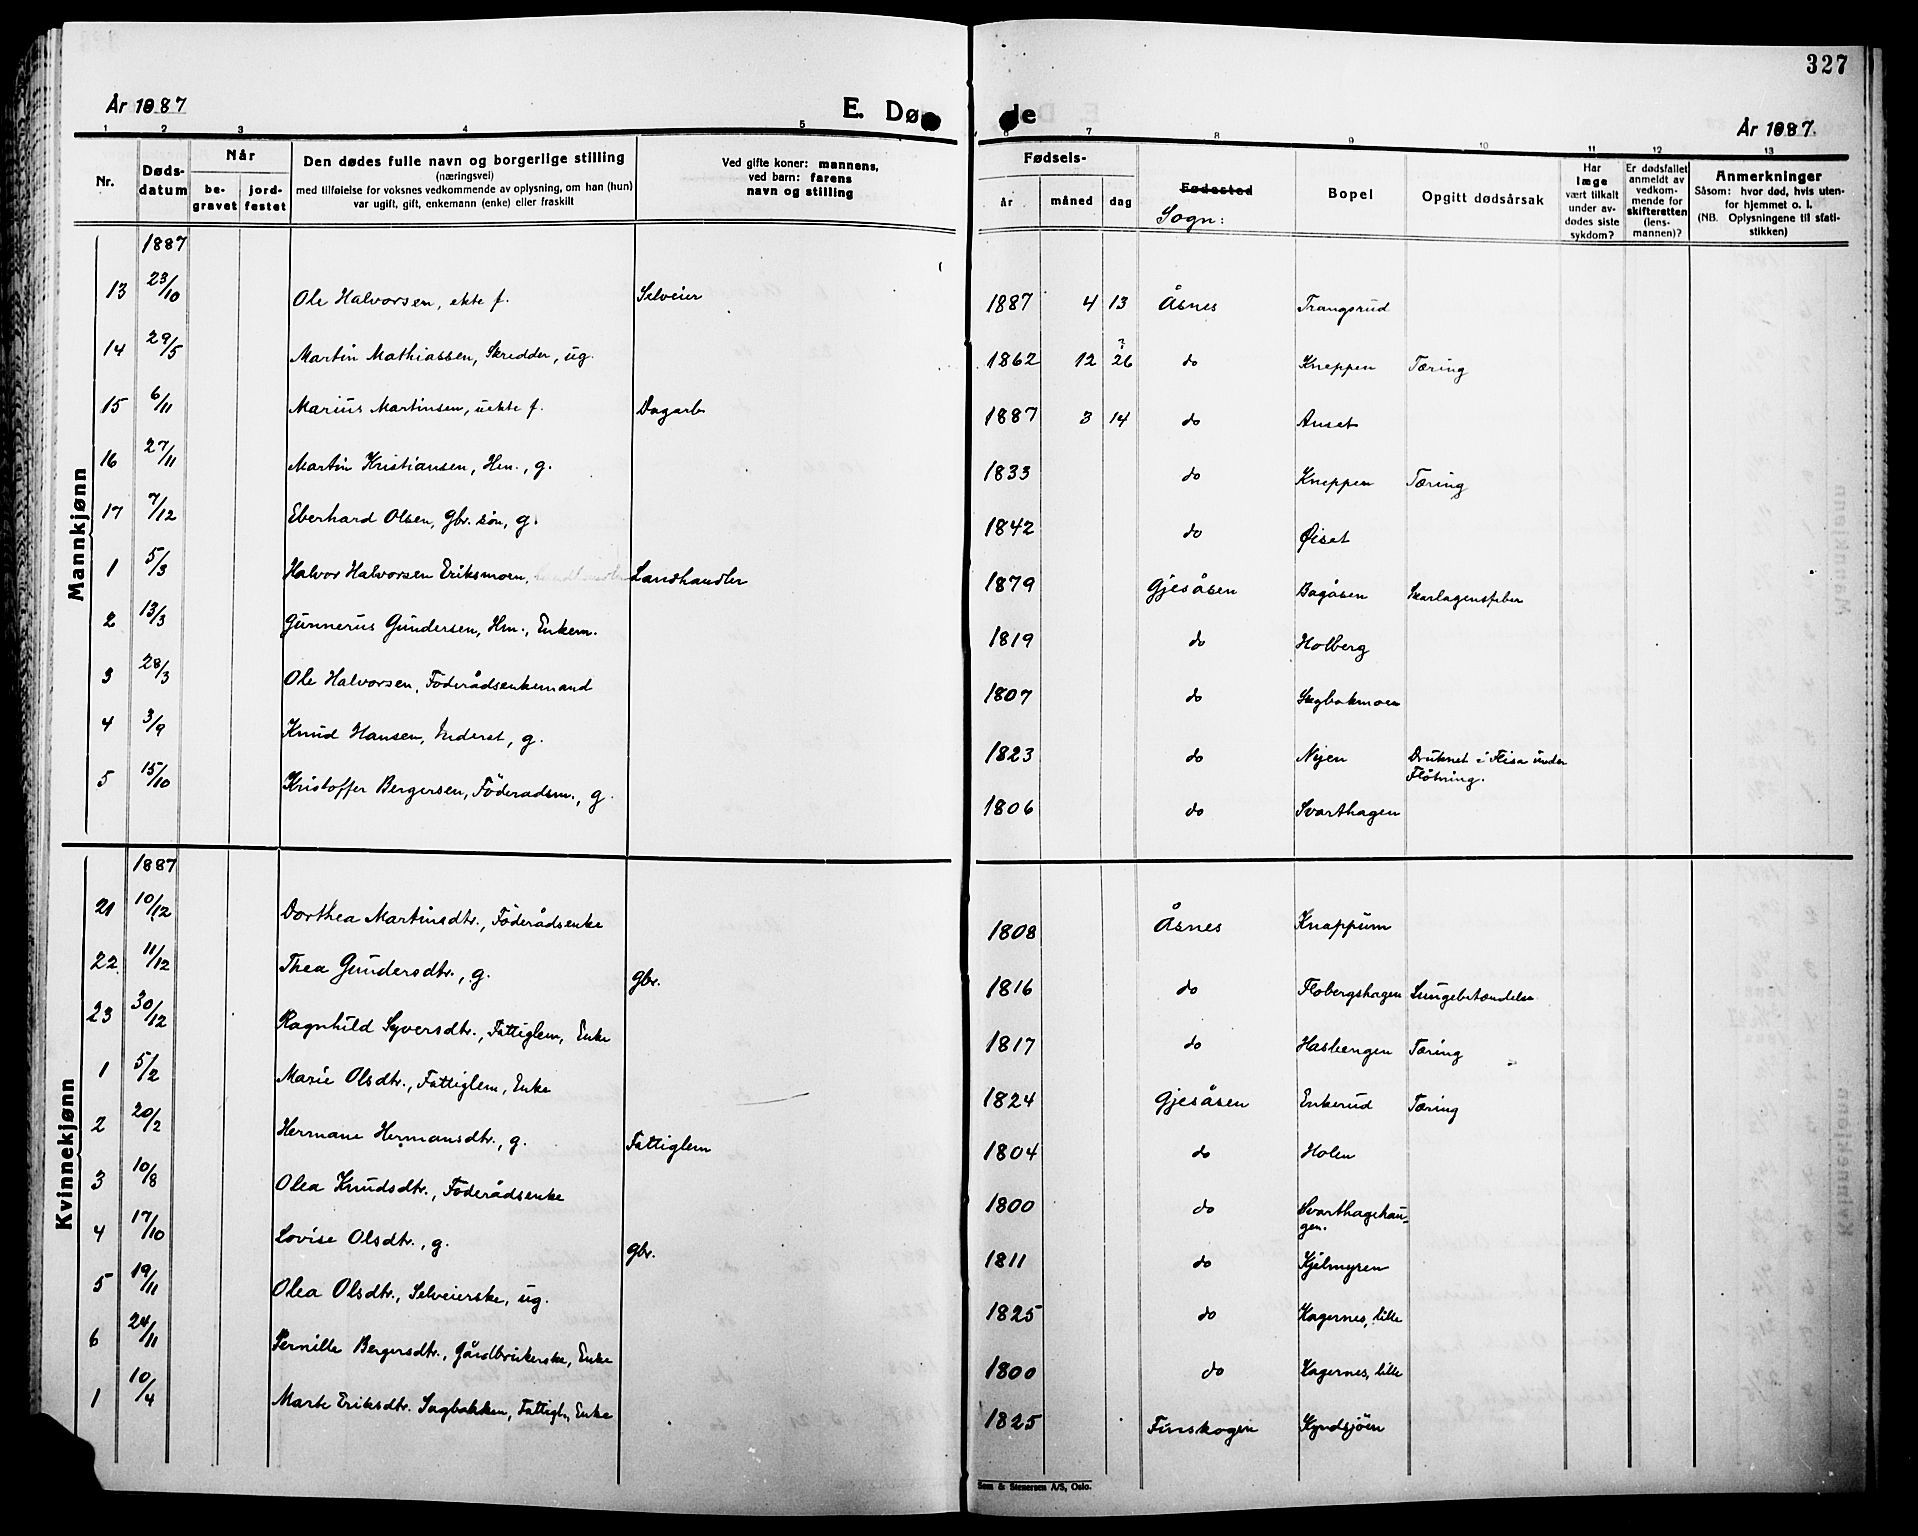 327
År 1887
E. Døde
År 1887.
1 2 3 4 5 6 7 8 9 10 11 12 13
Nr.
Døds-
datum
Når
be-
gravet
jord-
festet
Den dødes fulle navn og borgerlige stilling
(næringsvei)
med tilføielse for voksnes vedkommende av oplysning, om han (hun)
var ugift, gift, enkemann (enke) eller fraskilt
Ved gifte koner: mannens,
ved barn: farens
navn og stilling
Fødsels-
år måned dag
Fødested
Sogn:
Bopel
Opgitt dødsårsak
Har
læge
vært tilkalt
under av-
dødes siste
sykdom?
Er dødsfallet
anmeldt av
vedkom-
mende for
skifteretten
(lens-
mannen)?
Anmerkninger
Såsom: hvor død, hvis uten-
for hjemmet o. l.
(NB. Oplysningene til stati-
stikken)
Mannkjønn
1887
13 23/10 Ole Halvorsen, ekte f. Selveier 1887 4 13 Åsnes Trangsrud
14 29/5 Martin Mathiassen, Skredder, ug. 1862 12 26 ? do Kneppen Tæring
15 6/11 Marius Martinsen, uekte f. Dagarb 1887 3 14 do Auset
16 27/11 Martin Kristiansen, Hm., g. 1833 do Kneppen Tæring
17 7/12 Eberhard Olsen, Gbr. søn, g. 1842 do Øiset
1 5/3 Halvor Halvorsen Eriksmoen, Landhandler 1879 Gjesåsen Bagåsen Skarlagensfeber
2 13/3 Gunnerus Gundersen, Hm., Enkem. 1819 do Holberg
3 28/3 Ole Halvorsen, Föderådsenkemand 1807 do Sagbakmoen
4 3/9 Knud Hansen, Inderst, g. 1823 do Nyen Druknet i Flisa under
Flötning.
5 15/10 Kristoffer Bergersen, Föderadsm., g. 1806 do Svarthagen
Kvinnekjønn
1887
21 10/12 Dorthea Martinsdtr., Föderådsenke 1808 Åsnes Knappum
22 11/12 Thea Gundersdtr., g. Gbr. 1816 do Flobergshagen Lungebetændelse
23 30/12 Ragnhild Syversdtr., Fattiglem, Enke 1817 do Hasbengen Tæring
1 5/2 Marie Olsdtr., Fattiglem, Enke 1824 Gjesåsen Enkerud Tæring
2 20/2 Hermane Hermansdtr., g. Fattiglem 1804 do Holen
3 10/8 Olea Knudsdtr., Föderådsenke 1800 do Svarthagehau-
gen.
4 17/10 Lovise Olsdtr., g. Gbr. 1811 do Kjelmyren
5 19/11 Olea Olsdtr., Selveierske, ug. 1825 do Kagernes, lille
6 24/11 Pernille Bergersdtr., Gårdbrukerske, Enke 1800 do Kagernes, lille
1 10/4 Marte Eriksdtr. Sagbakken, Fattigl., Enke 1825 Finskogen Kyndsjöen
Sem & Stenersen A/S, Oslo.